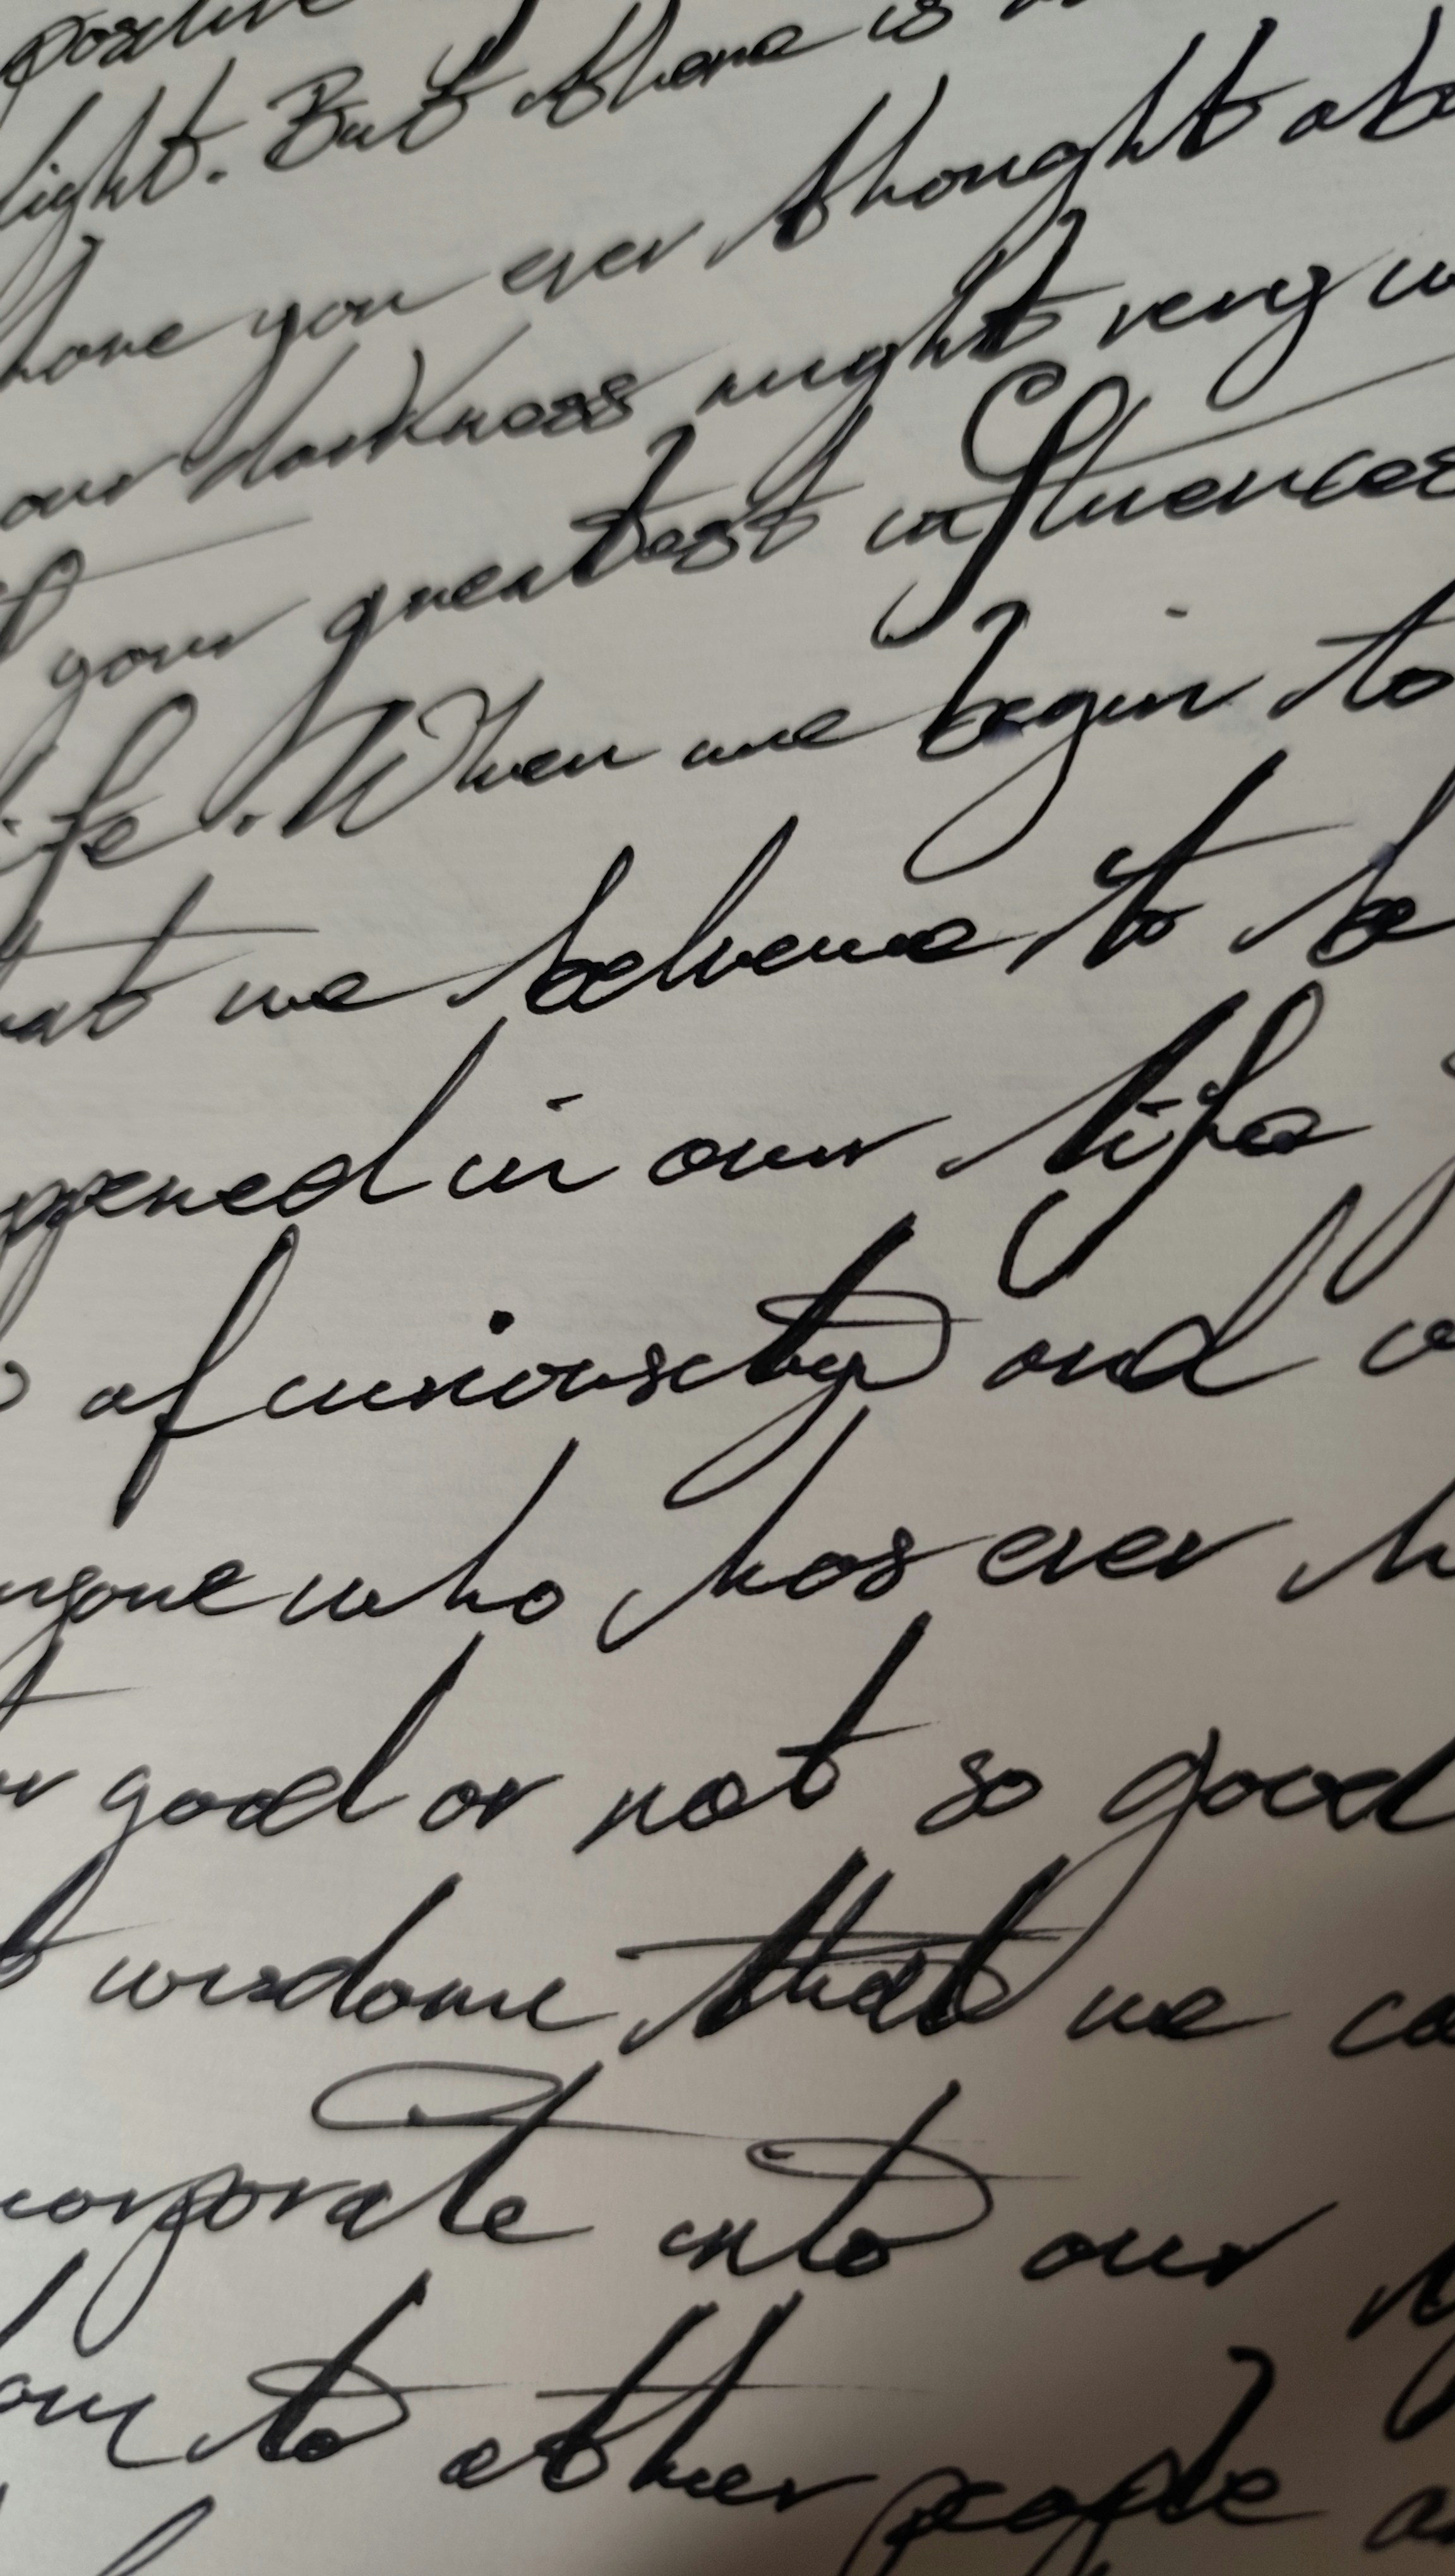 positive
light. But there is
have you ever thought abo
our darkness might very w
your greatest influences
life. When we begin to
hat we believe to be
ppened in our life
of curiousity and
nyone who has ever h
good or not so good
wisdome that we ca
corporate into our
to other people